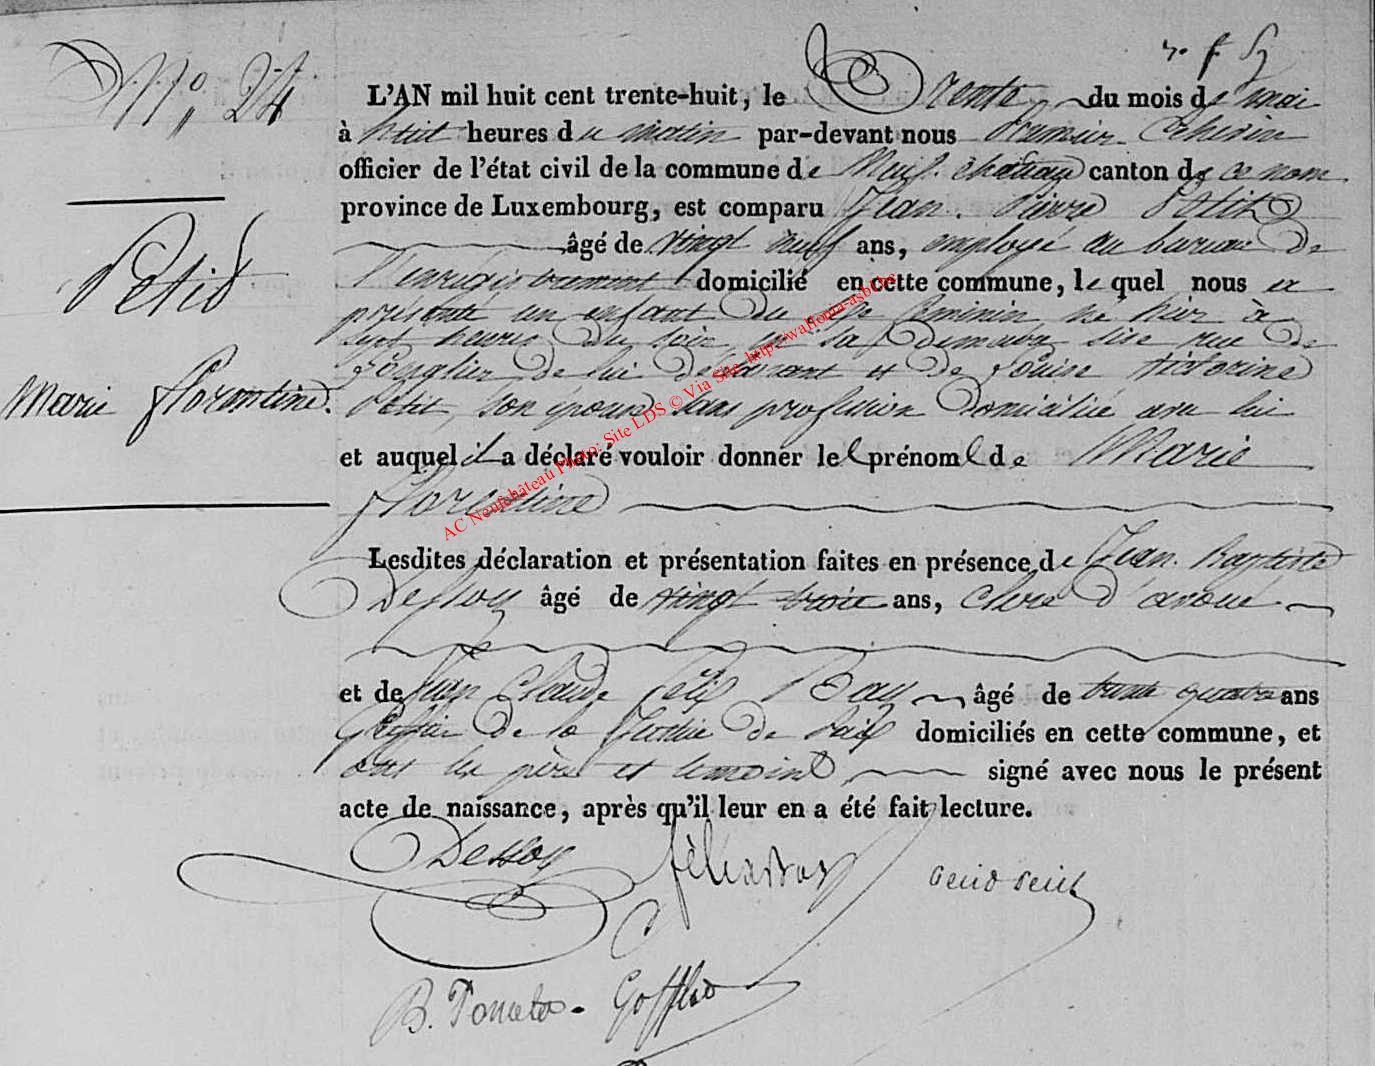 N° 24
Petit
Marie florentine.
L'AN mil huit cent trente-huit, le trente du mois de mai
à huit heures du matin par-devant nous Premier Echevin
officier de l'état civil de la commune de Neufchateau canton de ce nom
province de Luxembourg, est comparu Jean Pierre Petit
âgé de vingt neuf ans, employé au bureau de
l'enregistrement domicilié en cette commune, lequel nous a
présenté un enfant du sexe féminin né hier à
sept heures du soir en sa demeure sise rue de
de lui déclarant et de Louise Victorine
Petit, son épouse sans profession domiciliée avec lui
et auquel il a déclaré vouloir donner le prénom de Marie
florentine
Lesdites déclaration et présentation faites en présence de Jean Baptiste
Dessoy âgé de vingt trois ans, clerc d'avoué
et de Jean Claude Félix âgé de trente quatre ans
Greffier de la Justice de Paix domiciliés en cette commune, et
ont les père et témoins signé avec nous le présent
acte de naissance, après qu'il leur en a été fait lecture.
Dessoy
B. Goffin
AC Neufchâteau Photo: Site LDS © Via Site http://wallonia-asbl.be